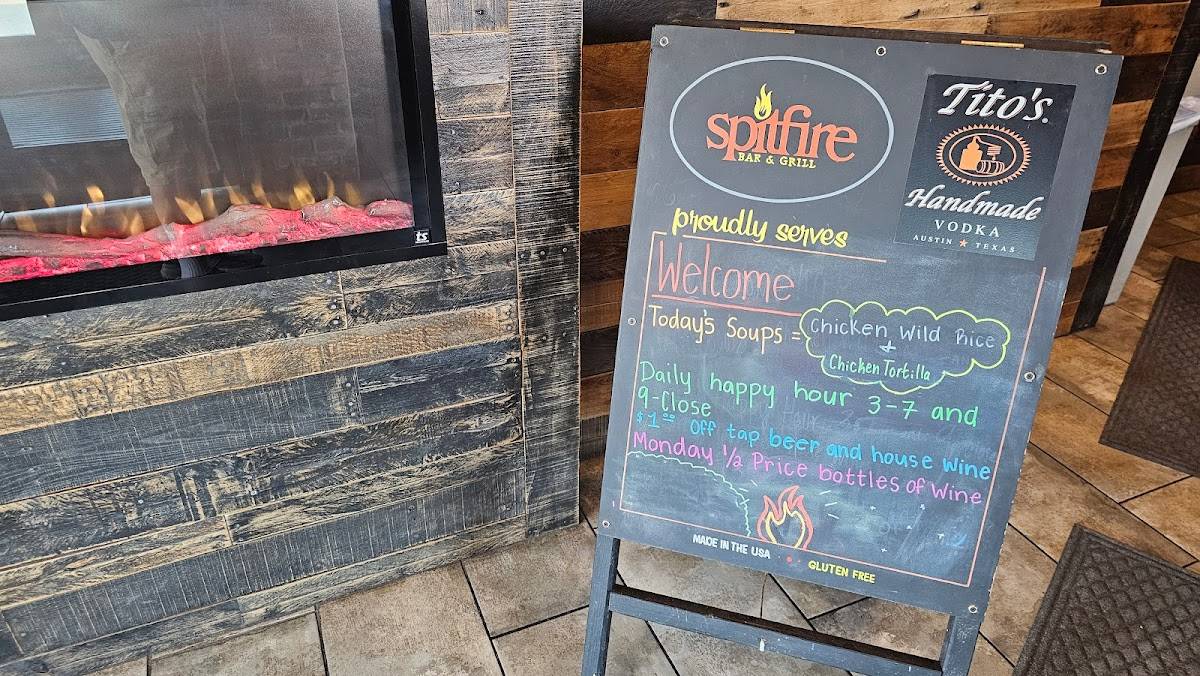 spitfire
BAR & GRILL
Tito's.
Handmade
VODKA
AUSTIN ★ TEXAS
proudly serves
Welcome
Today's Soups = Chicken Wild Rice
+
Chicken Tortilla
Daily happy hour 3-7 and
9-Close
$1.00 Off tap beer and house wine
Monday 1/2 Price bottles of Wine
MADE IN THE USA
GLUTEN FREE
ts